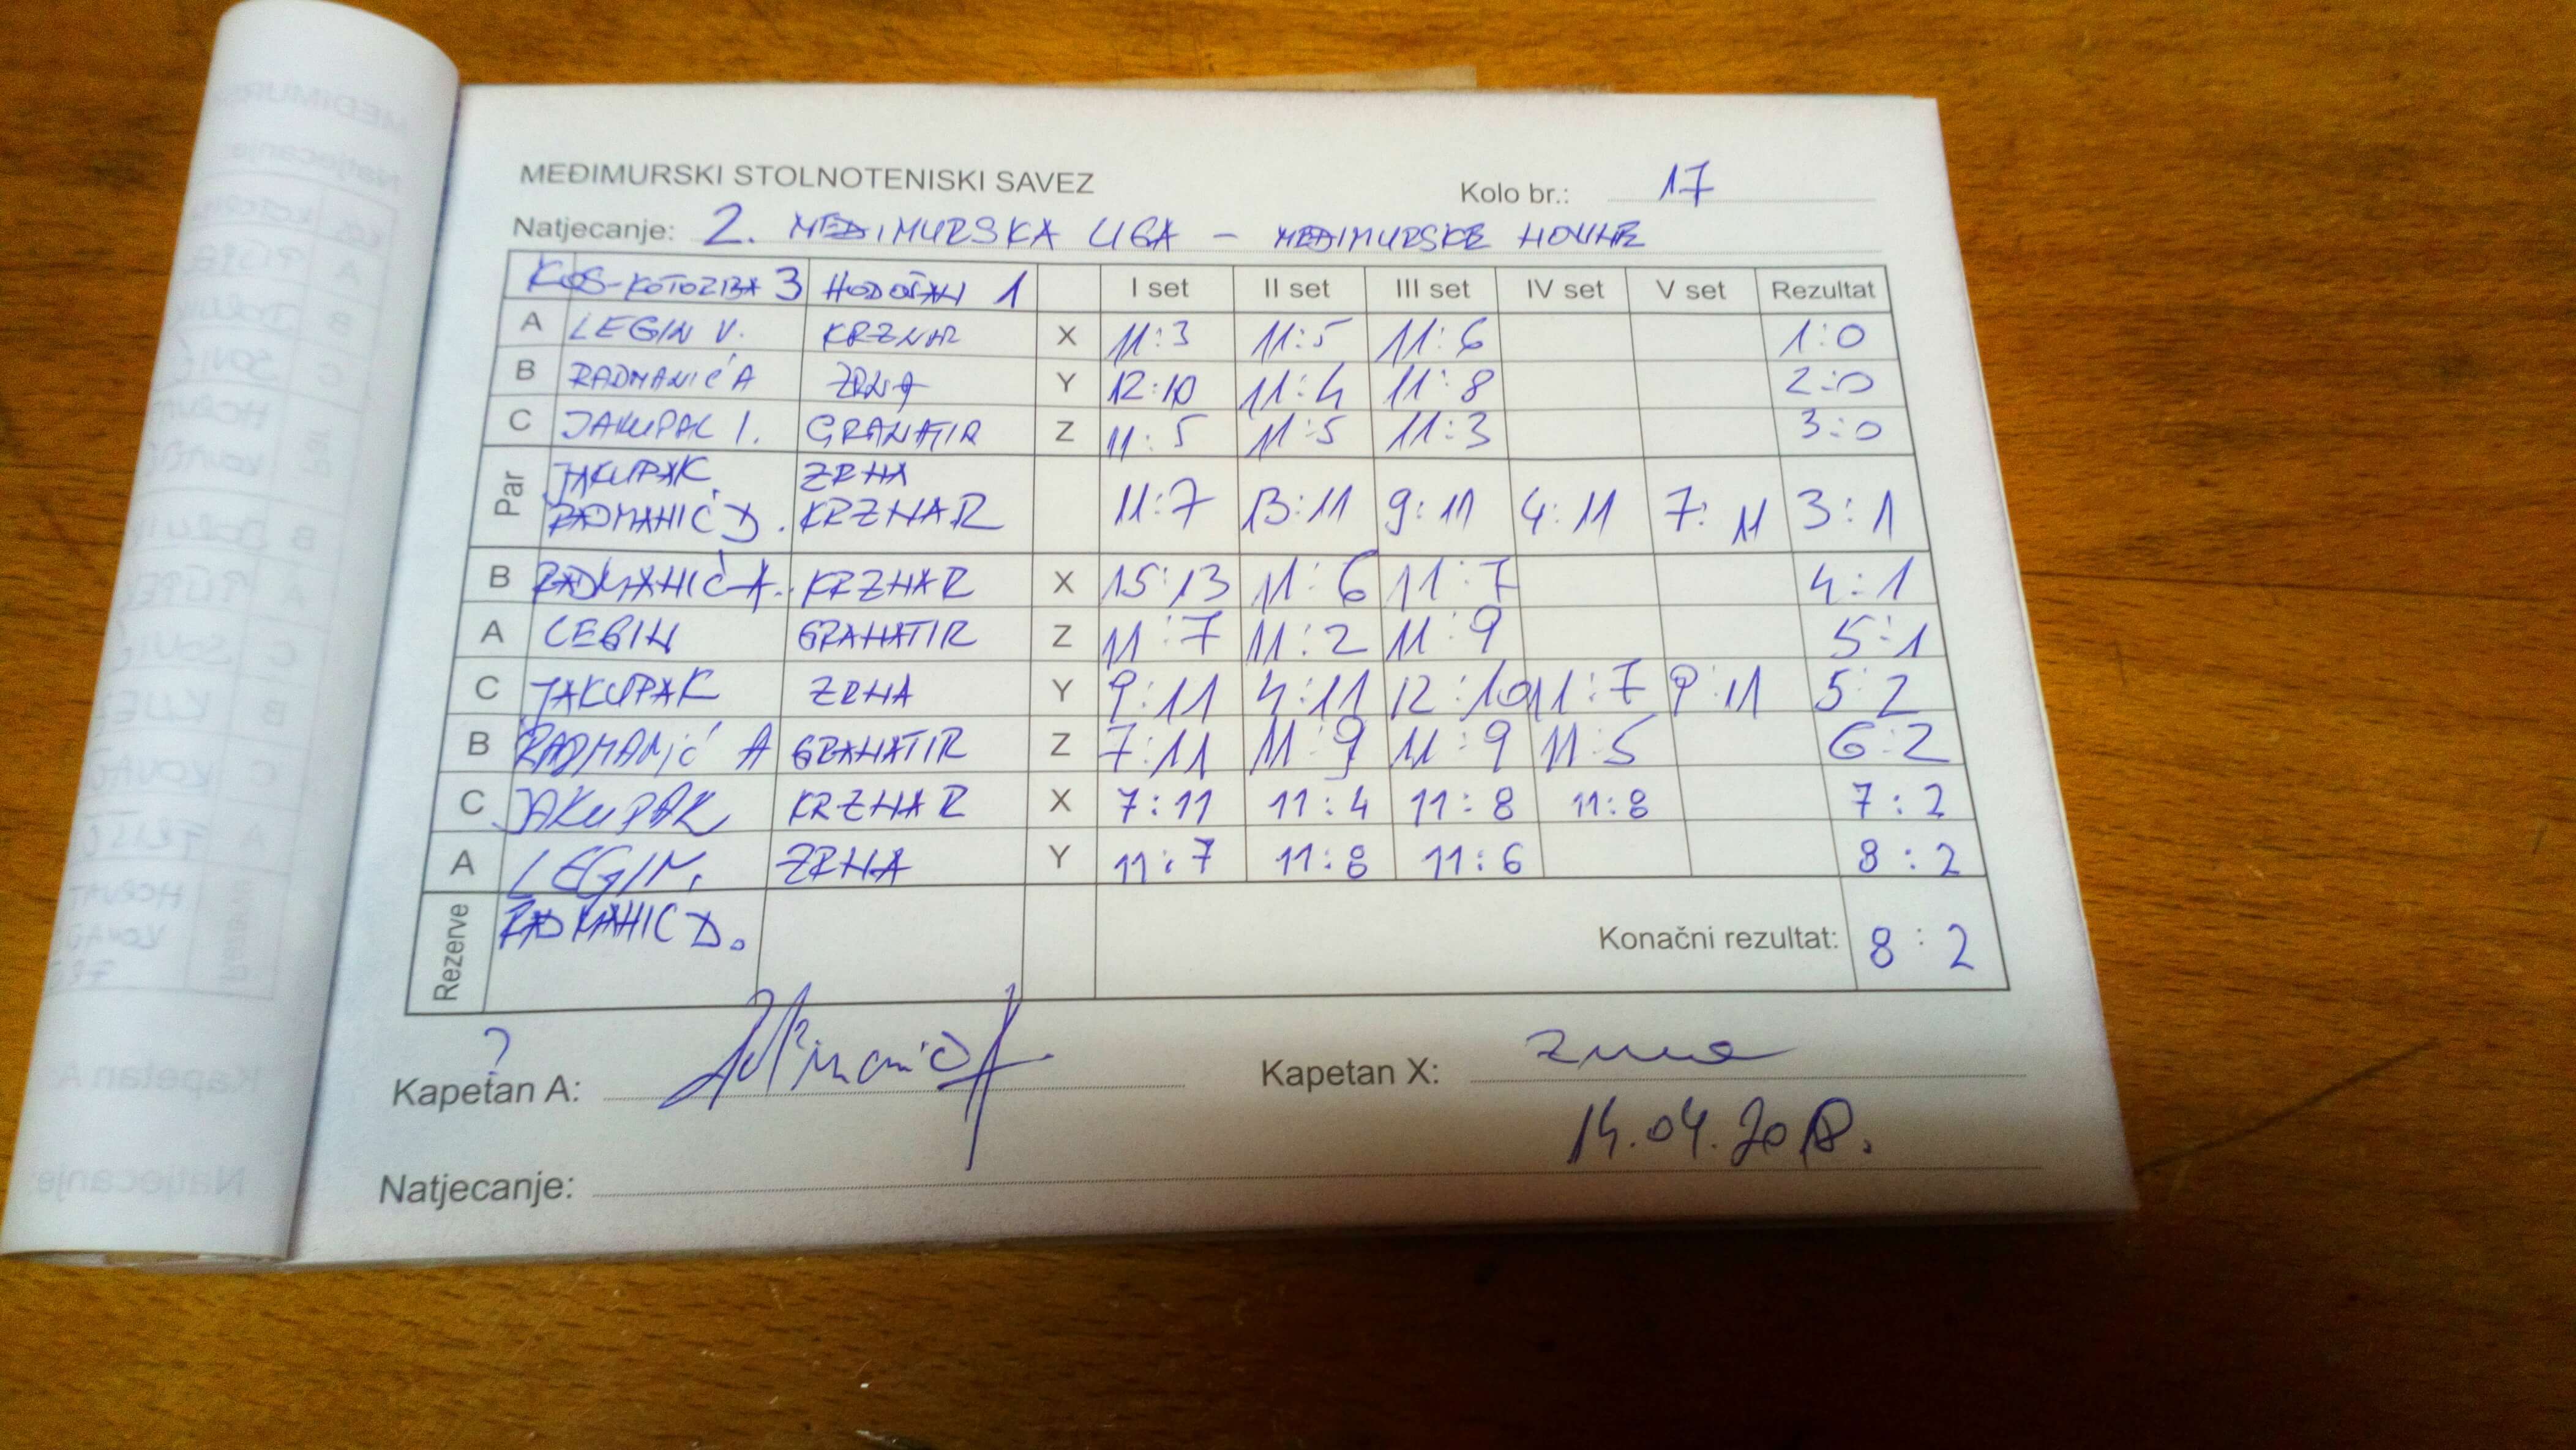 MEĐIMURSKI STOLNOTENISKI SAVEZ
Kolo br.: 17
Natjecanje: 2. MEĐIMURSKA LIGA - MEĐIMURSKE NOVINE
KOS-KOTORIBA 3 HODOŠAN 1 I set II set III set IV set V set Rezultat
A LEGIN V. KRZNAR X 11:3 11:5 11:6 1:0
B RADMANIĆ A ZRNA Y 12:10 11:4 11:8 2:0
C JAKUPAK I. GRANATIR Z 11:5 11:5 11:3 3:0
Par JAKUPAK ZRNA
RADMANIĆ D. KRZNAR 11:7 13:11 9:11 4:11 7:11 3:1
B RADMANIĆ A. KRZNAR X 15:13 11:6 11:7 4:1
A LEGIN GRANATIR Z 11:7 11:2 11:9 5:1
C JAKUPAK ZRNA Y 9:11 4:11 12:10 11:7 9:11 5:2
B RADMANIĆ A GRANATIR Z 7:11 11:9 11:9 11:5 6:2
C JAKUPAK KRZNAR X 7:11 11:4 11:8 11:8 7:2
A LEGIN. ZRNA Y 11:7 11:8 11:6 8:2
Rezerve RADMANIC D.
Konačni rezultat: 8:2
?
Kapetan A: Radmanić A
Kapetan X: Zrna
14.04.2018.
Natjecanje: